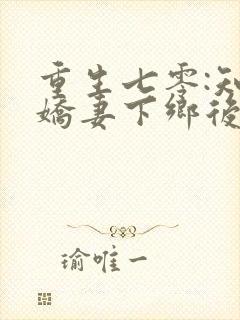 重生七零:知
嬌妻下鄉後
瑜唯一